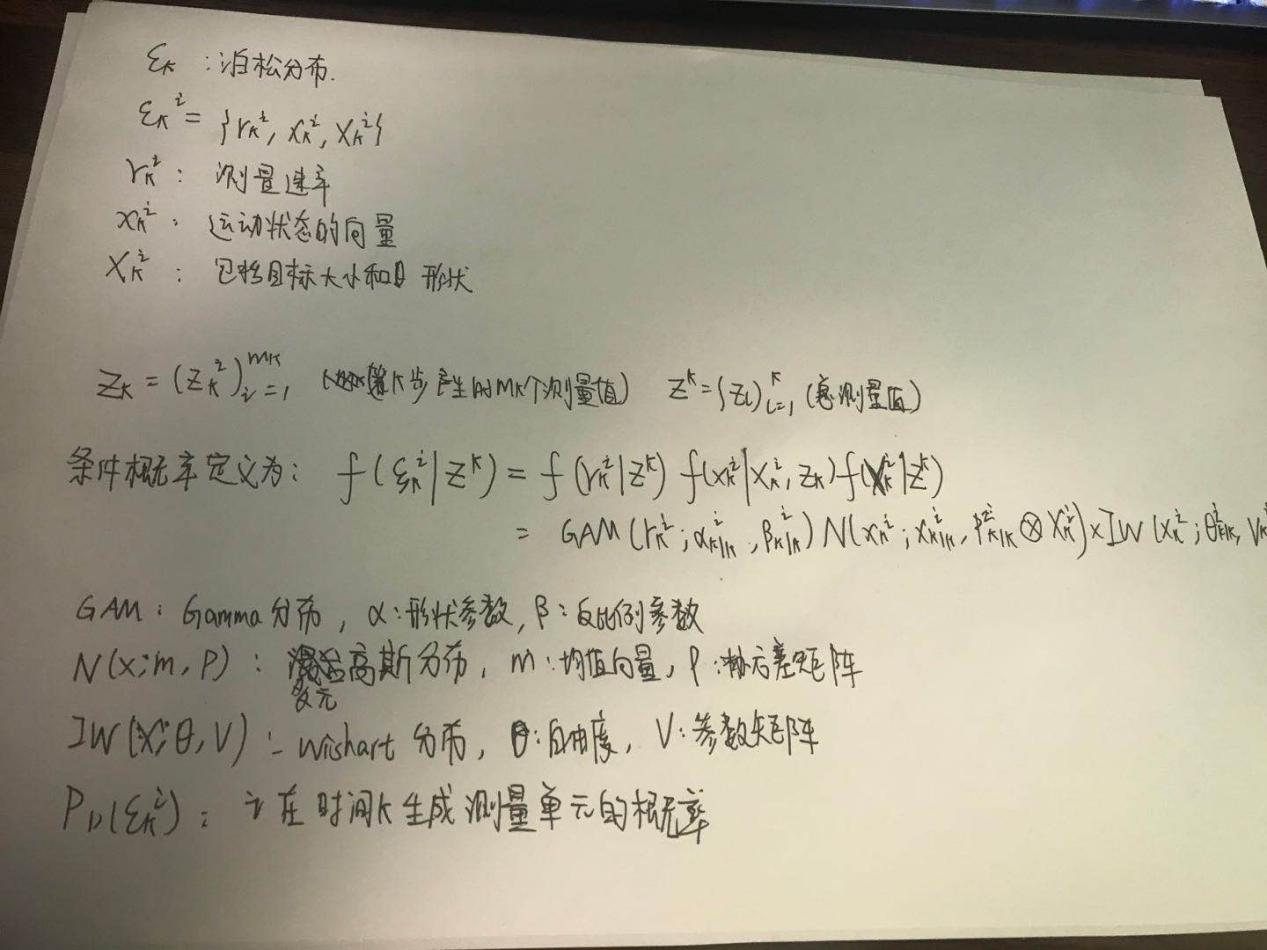 ξ_k : 泊松分布.
ξ_k^i = {r_k^i, x_k^i, X_k^i}
r_k^i : 测量速率
x_k^i : 运动状态的向量
X_k^i : 包括目标大小和 形状
Z_k = (z_k^i)_{i=1}^{m_k} (第k步产生的m_k个测量值) Z^k = {Z_l}_{l=1}^k (总测量值)
条件概率定义为: f(ξ_k^i|Z^k) = f(r_k^i|Z^k) f(x_k^i|X_k^i, Z_k) f(X_k^i|Z^k)
= GAM(r_k^i; α_{k|k}^i, β_{k|k}^i) N(x_k^i; x_{k|k}^i, P_{k|k}^i ⊗ X_k^i) × IW(X_k^i; θ_{k|k}^i, V_k
GAM: Gamma分布, α:形状参数, β:反比例参数
N(x;m,P): 多元高斯分布, m:均值向量, P:协方差矩阵
IW(X;θ,V): Wishart 分布, θ:自由度, V:参数矩阵
P_D(ξ_k^i): i在时间k生成测量单元的概率